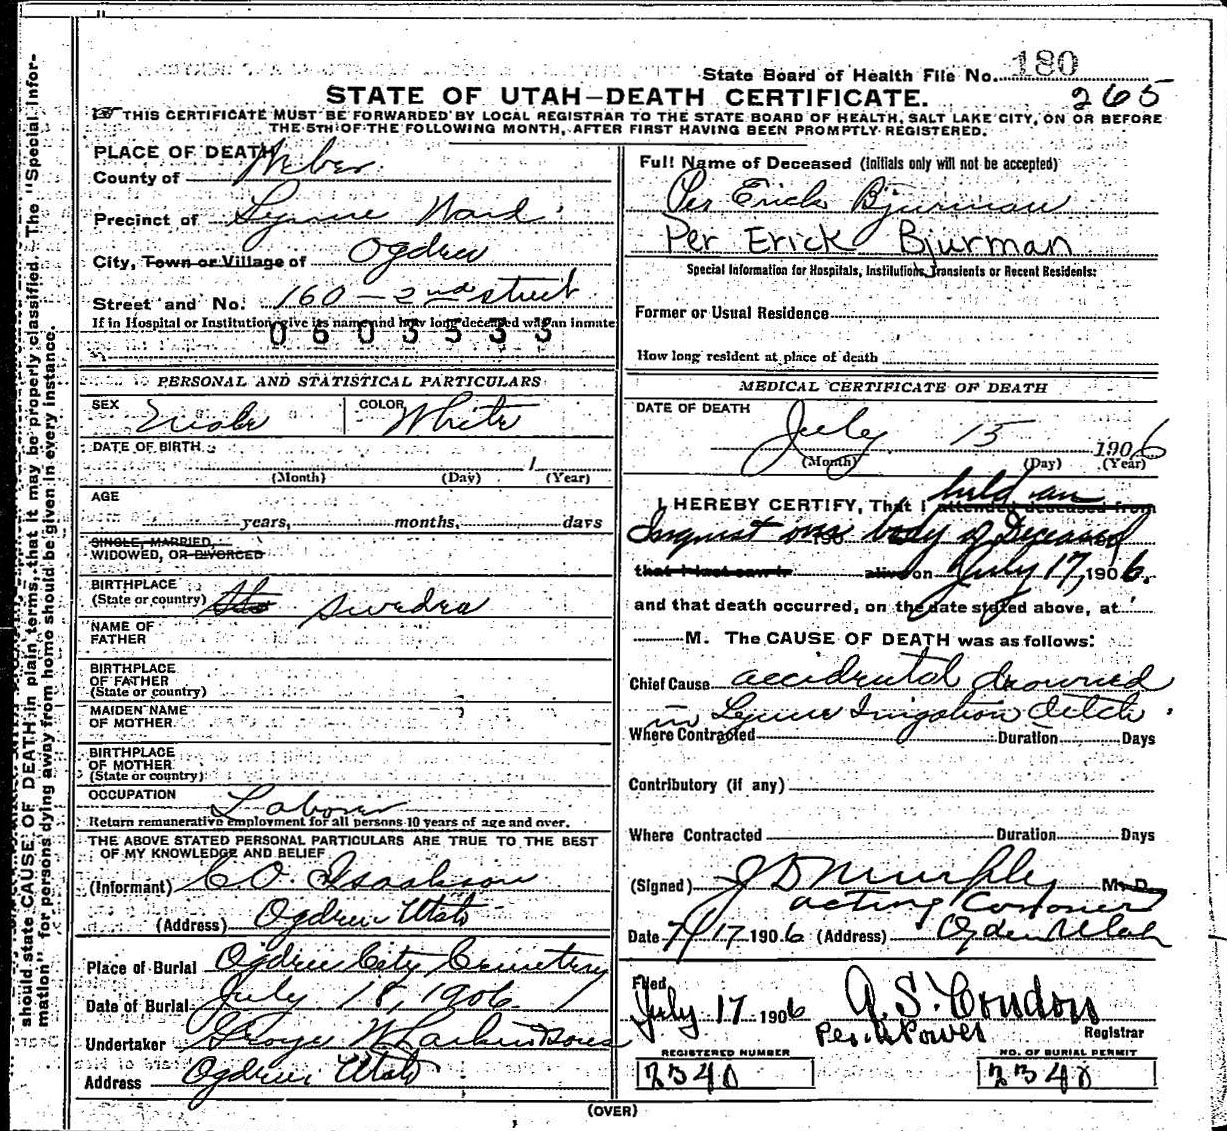 State Board of Health File No. 180
265
STATE OF UTAH—DEATH CERTIFICATE.
THIS CERTIFICATE MUST BE FORWARDED BY LOCAL REGISTRAR TO THE STATE BOARD OF HEALTH, SALT LAKE CITY, ON OR BEFORE
THE 5TH OF THE FOLLOWING MONTH, AFTER FIRST HAVING BEEN PROMPTLY REGISTERED.
should state CAUSE OF DEATH in plain terms, that it may be properly classified. The "Special Infor-
mation" for persons dying away from home should be given in every instance.
PLACE OF DEATH
County of Weber
Precinct of Lynne Ward
City, Town or Village of Ogden
Street and No. 160 - 2nd street
If in Hospital or Institution give its name and how long deceased was an inmate
0603533
PERSONAL AND STATISTICAL PARTICULARS
SEX Male COLOR White
DATE OF BIRTH
1
(Month) (Day) (Year)
AGE
years, months, days
SINGLE, MARRIED,
WIDOWED, OR DIVORCED
BIRTHPLACE
(State or country) Sweden
NAME OF
FATHER
BIRTHPLACE
OF FATHER
(State or country)
MAIDEN NAME
OF MOTHER
BIRTHPLACE
OF MOTHER
(State or country)
OCCUPATION Laborer
Return remunerative employment for all persons 10 years of age and over.
THE ABOVE STATED PERSONAL PARTICULARS ARE TRUE TO THE BEST
OF MY KNOWLEDGE AND BELIEF
(Informant) C.O. Isaakson
(Address) Ogden Utah
Place of Burial Ogden City Cemetery
Date of Burial July 18, 1906
Undertaker George W. Larkin & Sons
Address Ogden Utah
Full Name of Deceased (Initials only will not be accepted)
Per Erick Bjurman
Per Erick Bjurman
Special Information for Hospitals, Institutions, Transients or Recent Residents:
Former or Usual Residence
How long resident at place of death
MEDICAL CERTIFICATE OF DEATH
DATE OF DEATH
July 15 1906
(Month) (Day) (Year)
I HEREBY CERTIFY, That I attended deceased from held an
Inquest over body of Deceased
that I last saw h alive on July 17, 1906.
and that death occurred, on the date stated above, at
M. The CAUSE OF DEATH was as follows:
Chief Cause accidental drowned
in Lynne Irrigation ditch.
Where Contracted Duration Days
Contributory (if any)
Where Contracted Duration Days
(Signed) J D Murphy M. D.
acting Coroner
Date 7/17 1906 (Address) Ogden Utah
Filed
July 17 1906 A. S. Condon
Per Power Registrar
REGISTERED NUMBER NO. OF BURIAL PERMIT
2340 2340
(OVER)